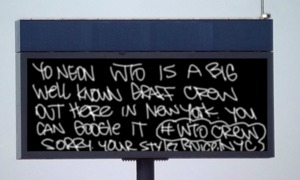 YO NEON WTO IS A BIG
WELL KNOWN GRAFF CREW
OUT HERE IN NEW YORK YOU
CAN GOOGLE IT #WTO CREW
SORRY YOUR STYLEZ